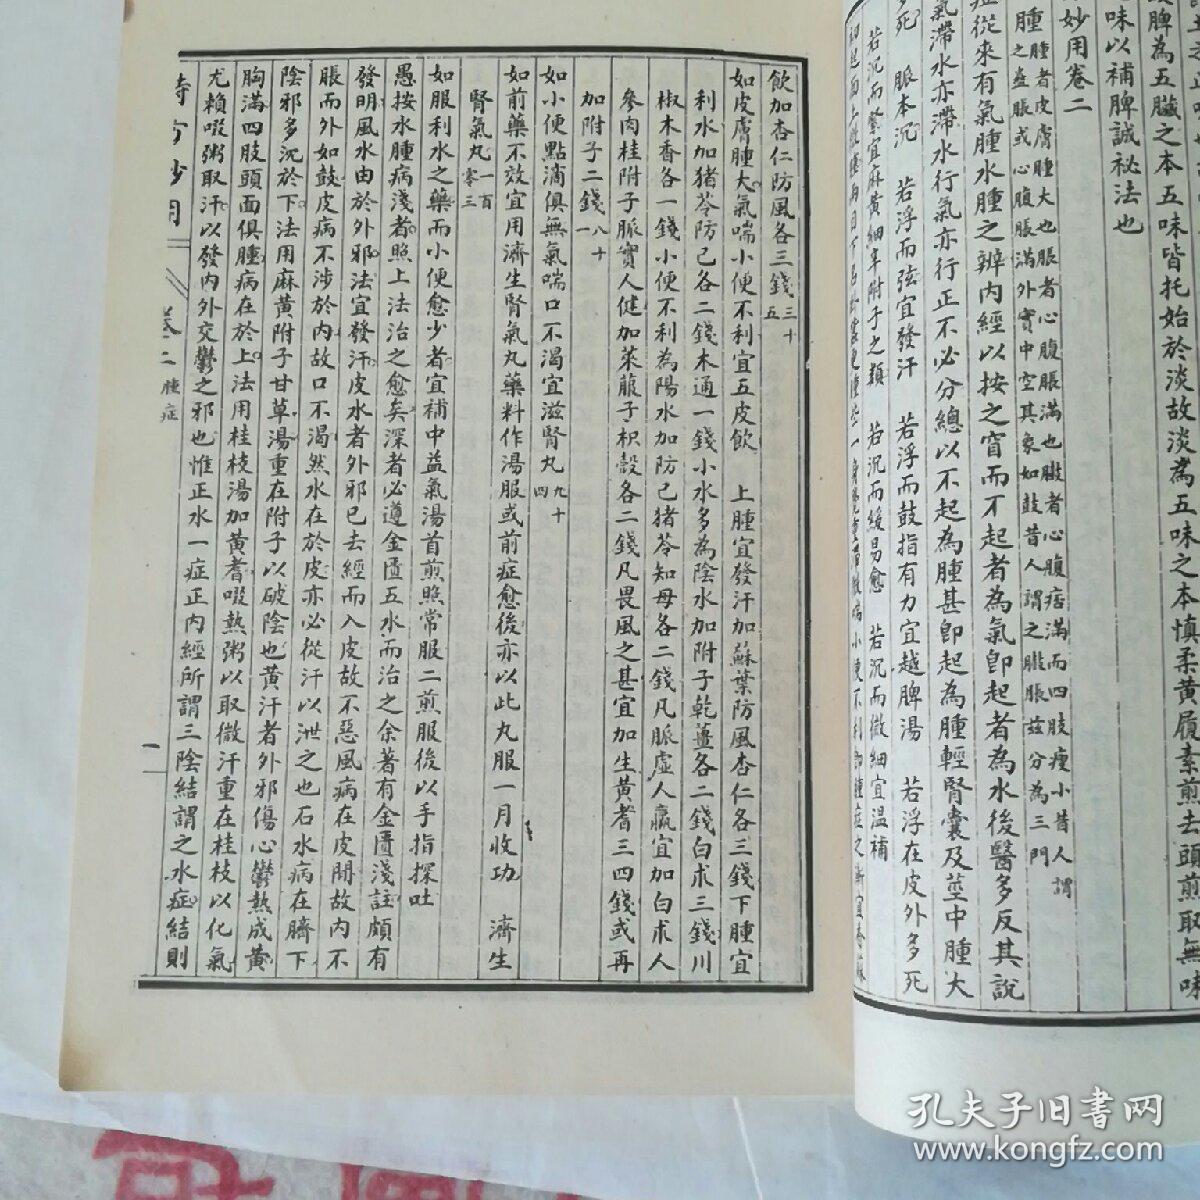 脾為五臟之本五味皆托始於淡故淡為五味之本慎柔黃履素煎去頭煎取無味
味以補脾誠祕法也
妙用卷二
腫
腫者皮膚腫大也脹者心腹脹滿也臌者心腹痞滿而四肢瘦小昔人謂
之蠱脹或心腹脹滿外實中空其象如鼓昔人謂之臌脹茲分為三門
症從來有氣腫水腫之辨內經以按之窅而不起者為氣即起者為水後醫多反其說
氣滯水亦滯水行氣亦行正不必分總以不起為腫甚即起為腫輕腎囊及莖中腫大
死　脈本沉　若浮而弦宜發汗　若浮而鼓指有力宜越脾湯　若浮在皮外多死
若沉而緊宜麻黃細辛附子之類　若沉而緩易愈　若沉而微細宜溫補
飲加杏仁防風各三錢三十五
如皮膚腫大氣喘小便不利宜五皮飲　上腫宜發汗加蘇葉防風杏仁各三錢下腫宜
利水加猪苓防己各二錢木通一錢小水多為陰水加附子乾薑各二錢白朮三錢川
椒木香各一錢小便不利為陽水加防己猪苓知母各二錢凡脈虛人羸宜加白朮人
參肉桂附子脈實人健加萊菔子枳殼各二錢凡畏風之甚宜加生黃耆三四錢或再
加附子二錢八十一
如小便點滴俱無氣喘口不渴宜滋腎丸九十四
如前藥不效宜用濟生腎氣丸藥料作湯服或前症愈後亦以此丸服一月收功　濟生
腎氣丸一百零三
如服利水之藥而小便愈少者宜補中益氣湯首煎照常服二煎服後以手指探吐
愚按水腫病淺者照上法治之愈矣深者必遵金匱五水而治之余著有金匱淺註頗有
發明風水由於外邪法宜發汗皮水者外邪已去經而入皮故不惡風病在皮間故內不
脹而外如鼓皮病不涉於內故口不渴然水在於皮亦必從汗以泄之也石水病在臍下
陰邪多沉於下法用麻黃附子甘草湯重在附子以破陰也黃汗者外邪傷心鬱熱成黃
胸滿四肢頭面俱腫病在於上法用桂枝湯加黃耆啜熱粥以取微汗重在桂枝以化氣
尤賴啜粥取汗以發內外交鬱之邪也惟正水一症正內經所謂三陰結謂之水症結則
時方妙用　卷二　腫症　一
孔夫子旧書网
www.kongfz.com